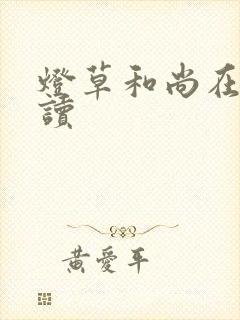 燈草和尚在
讀
黃愛平